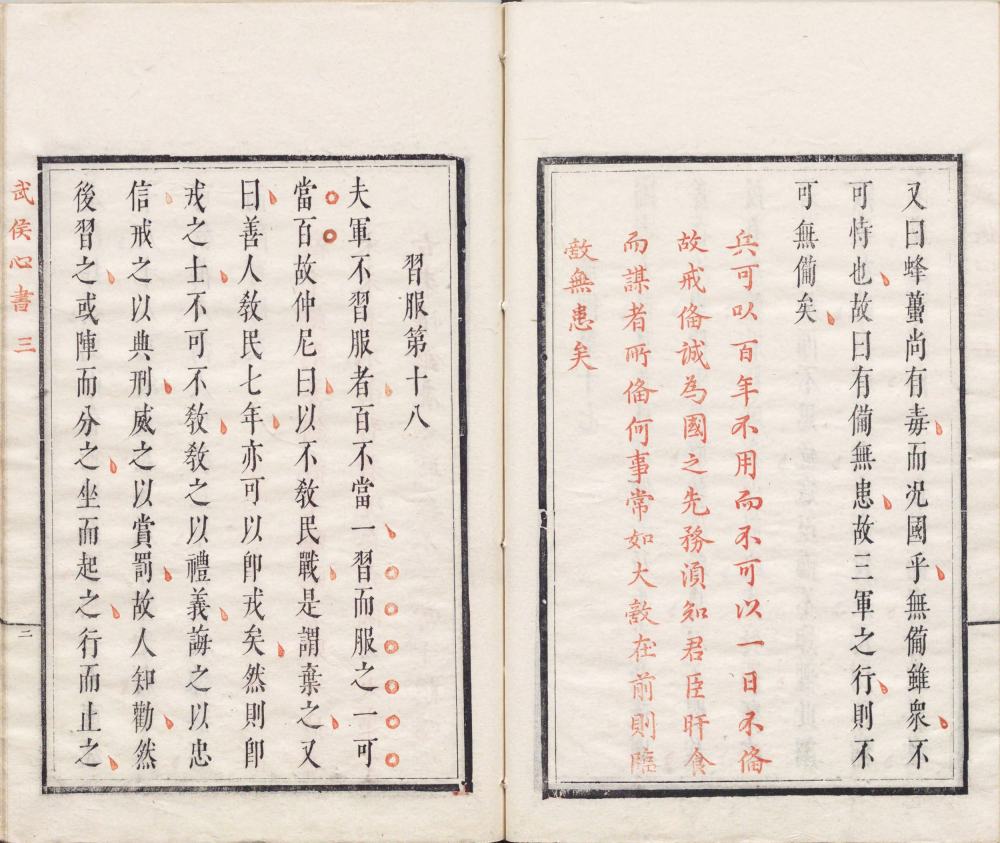 又曰蜂蠆尚有毒而况國乎無俻雖衆不
可恃也故曰有俻無患故三軍之行則不
可無俻矣
兵可以百年不用而不可以一日不俻
故戒俻誠為國之先務須知君臣旰食
而謀者所俻何事常如大敵在前則臨
敵無患矣
習服第十八
夫軍不習服者百不當一習而服之一可
當百故仲尼曰以不敎民戰是謂棄之又
曰善人敎民七年亦可以卽戎矣然則卽
戎之士不可不敎敎之以禮義誨之以忠
信戒之以典刑威之以賞罰故人知勸然
後習之或陣而分之坐而起之行而止之
武侯心書 三
二